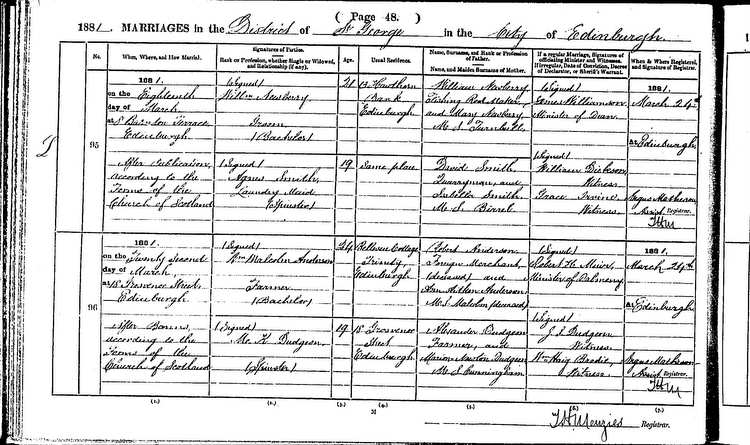 (Page 48.)
1881. MARRIAGES in the District of St George in the City of Edinburgh
No. When, Where, and How Married. Signatures of Parties. Rank or Profession, whether Single or Widowed, and Relationship (if any). Age. Usual Residence. Name, Surname, and Rank or Profession of Father. Name, and Maiden Surname of Mother. If a regular Marriage, Signatures of officiating Minister and Witnesses. If irregular, Date of Conviction, Decree of Declarator, or Sheriff's Warrant. When & Where Registered, and Signature of Registrar.
95
1881.
on the Eighteenth
day of March
at 8 Terrace
Edinburgh
After Publication,
according to the
Forms of the
Church of Scotland
(Signed)
Willm Newberry
(Bachelor)
(Signed)
Agnes Smith,
Laundry Maid
(Spinster)
21
19
13 Hawthorn
Bank
Edinburgh
Same place
William Newberry
Fishing Rod Maker,
and Mary Newberry
M.S. Turnbull
David Smith,
Quarryman and
Isabella Smith
M.S. Birrel
(Signed)
James Williamson
Minister of Dean
(Signed)
William Dickson
Witness
Grace Irvine
Witness
1881.
March 24th
at Edinburgh
Angus Matheson
Assist Registrar.
THM
96
1881.
on the Twenty Second
day of March,
at 18 Grosvenor Street,
Edinburgh
After Banns,
according to the
Forms of the
Church of Scotland
(Signed)
Wm Malcolm Anderson
Farmer
(Bachelor)
(Signed)
M. K. Dudgeon
(Spinster)
24
19
Cottage
Trinity
Edinburgh
18 Grosvenor
Street
Edinburgh
Robert Anderson
Foreign Merchant,
(deceased) and
Ann Anderson
M.S. Malcolm (deceased)
Alexander Dudgeon
Farmer, and
Marion Newton Dudgeon
M.S. Cunningham
(Signed)
Robert H. Muir,
Minister of Dalmeny
(Signed)
J. S. Dudgeon
Witness
Wm Haig Brodie,
Witness
1881.
March 24th
at Edinburgh
Angus Matheson
Assist Registrar.
THM
(1.) (2.) (3.) (4.) (5.) (6.) (7.)
T H Menzies Registrar.